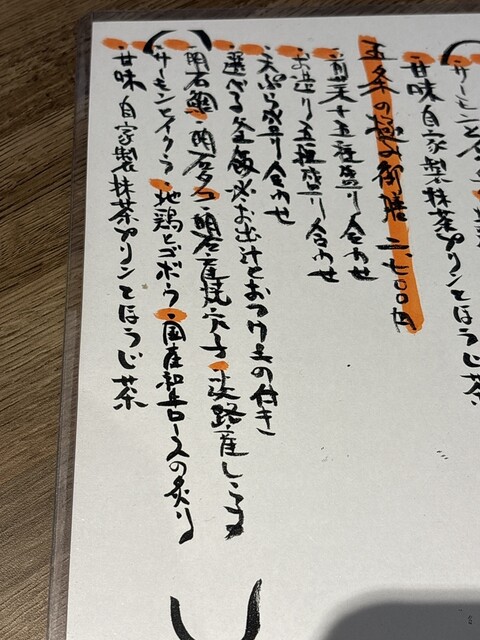 サーモンと
甘味 自家製抹茶プリンとほうじ茶
五条の極み御膳 二、七〇〇円
前菜十五種盛り合わせ
お造り五種盛り合わせ
天ぷら盛り合わせ
選べる釜飯 お出汁とおつけもの付き
明石鯛 明石多こ 明石産焼穴子 淡路産しらす
サーモンとイクラ 地鶏とゴボウ 国産和牛ロースの炙り
甘味 自家製抹茶プリンとほうじ茶